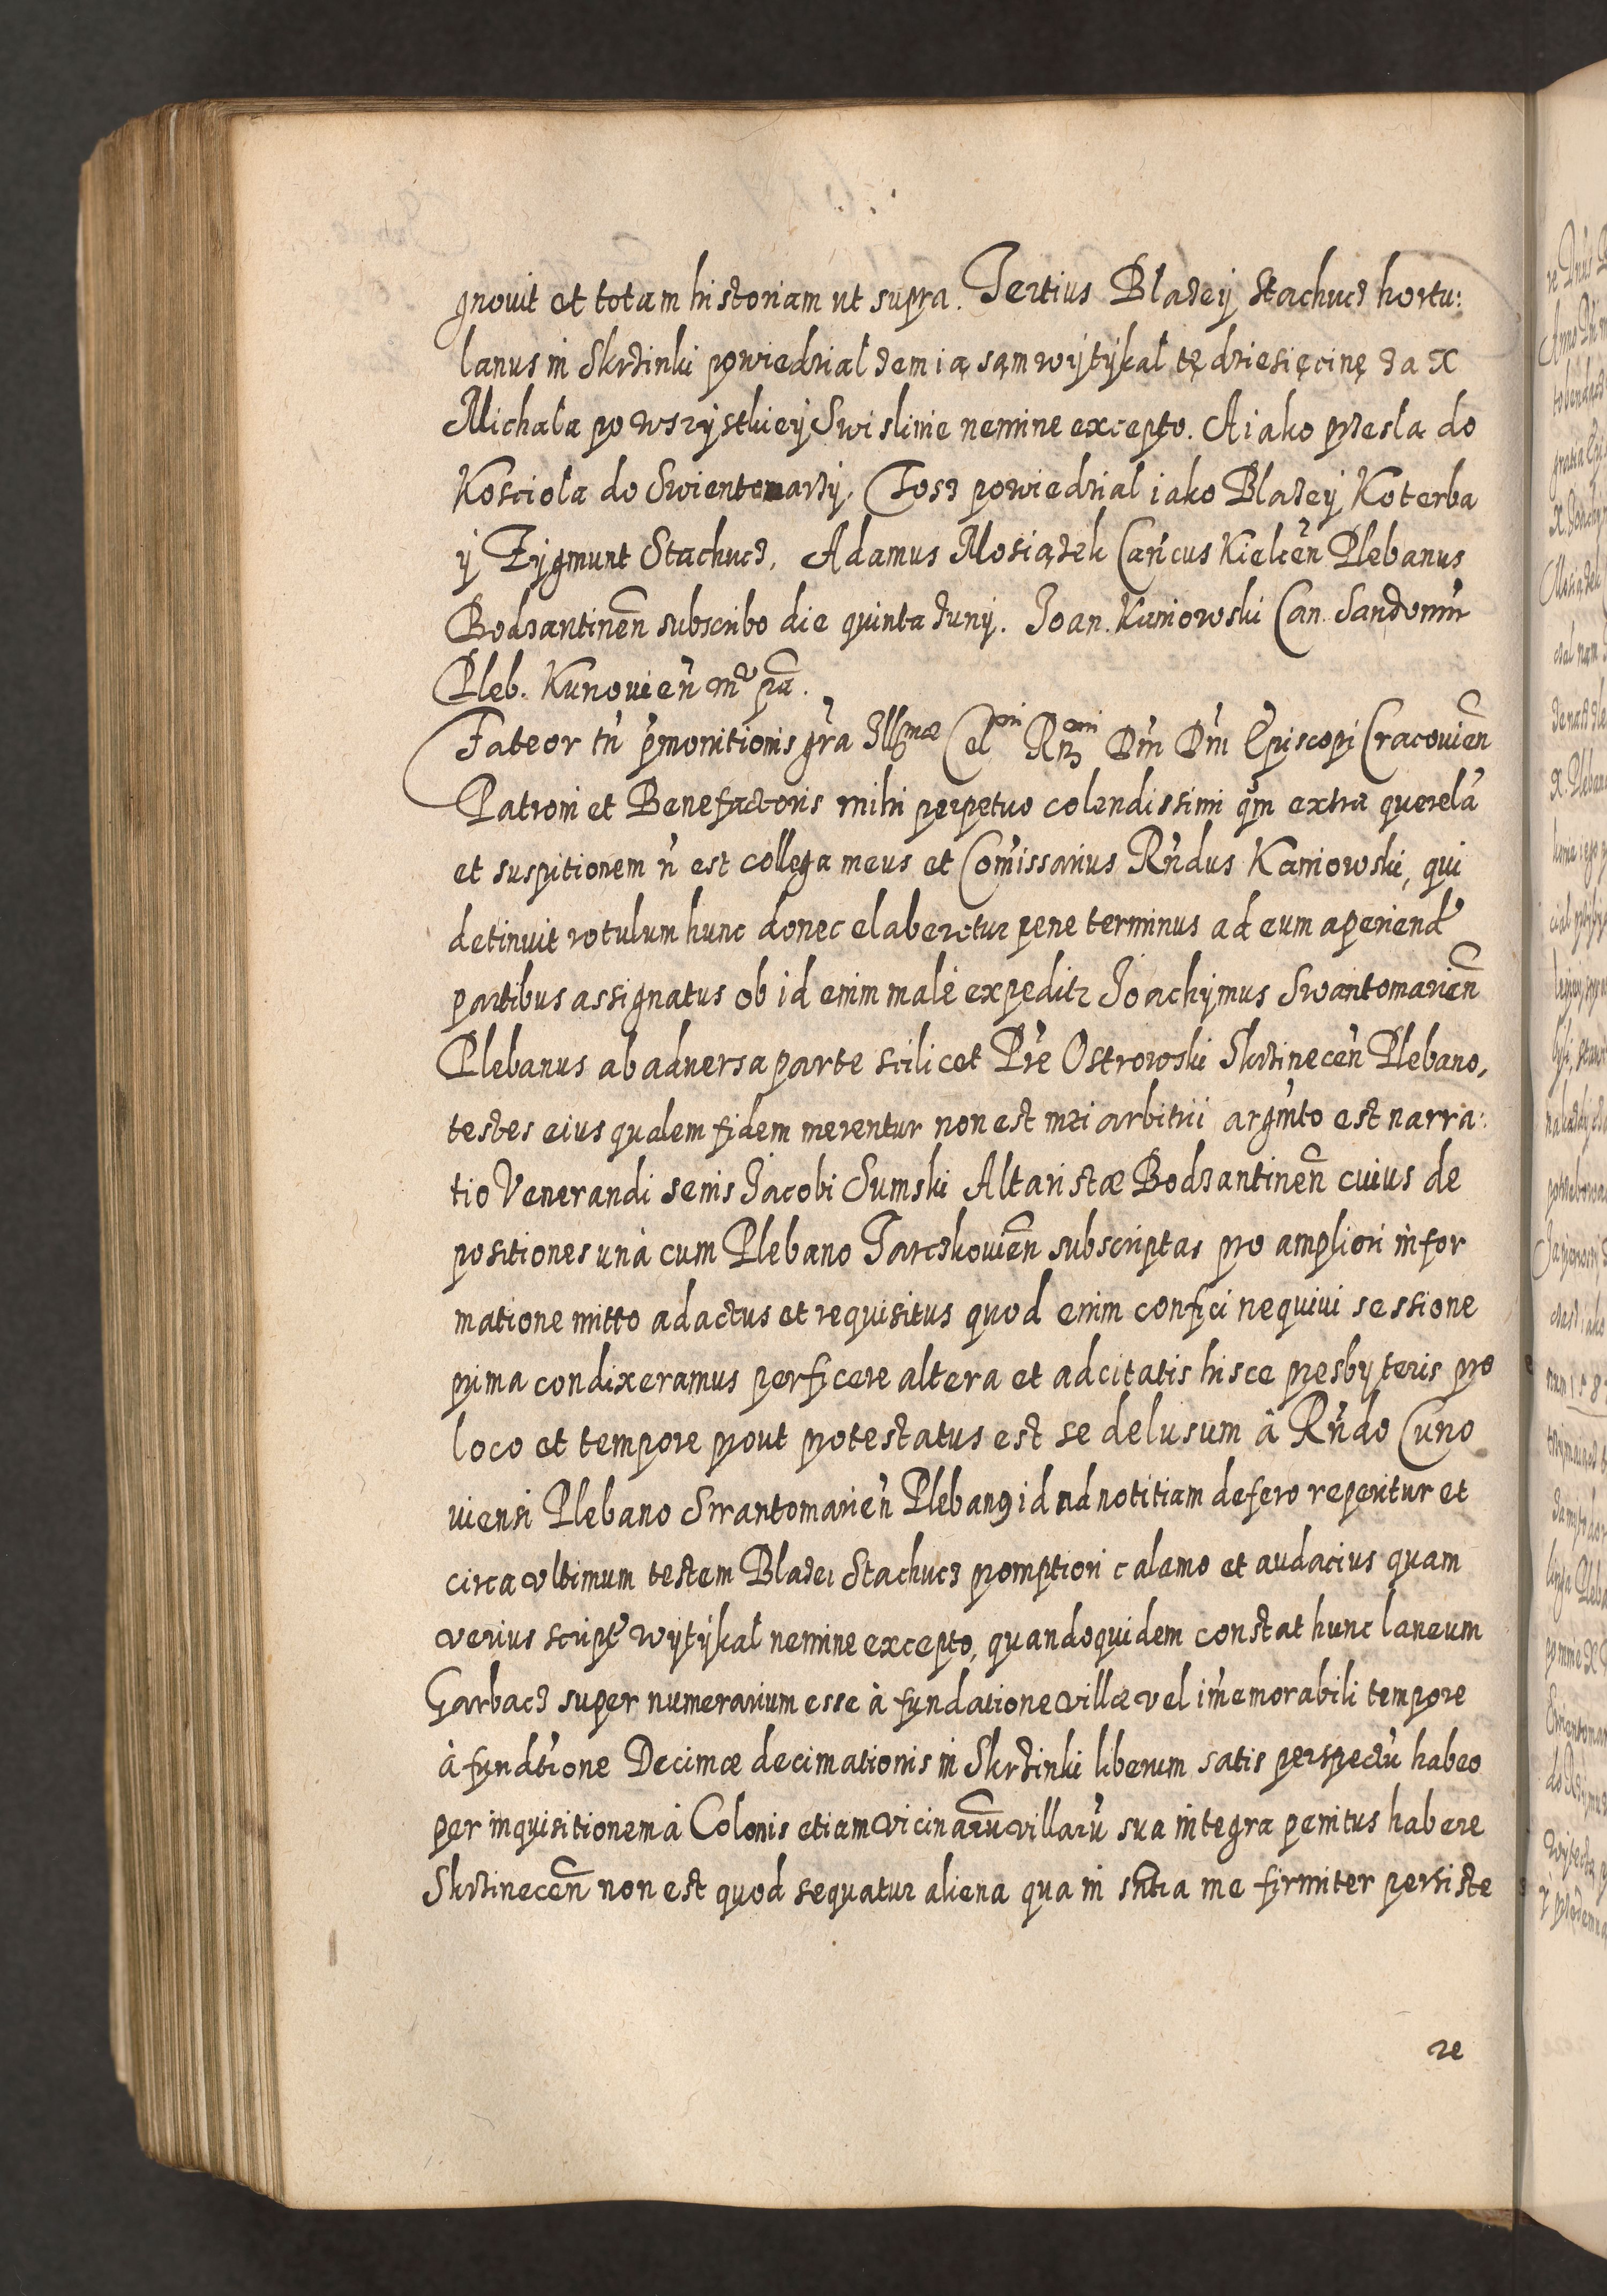 gnouit et totam historiam ut supra. Tertius Blazey Stachucz hortu:
lanus in Skrzinki powiedzial zem ią sąm wytykal tę dziesięcinę za X
Michala po wszystkiey Swislinie nemine excepto. A iako przesla do
Kosciola do Swientomarzy. Tosz powiedzial iako Blazey Koterba
y Zygmunt Stachucz. Adamus Mosiązek Cancus Kielcen Plebanus
Bodzantinen subscribo die quinta Iuny. Joan. Kaniowski Can. Sandomir
Pleb. Kunouien mp pa.
Fateor tn pmonitionis gra Illmæ Celni Rmi Dni Dni Episcopi Cracouien
Patroni et Benefactoris mihi perpetuo colendissimi qm extra querela
et suspitionem n est collega meus et Comissarius Rndus Kaniowski, qui
detinuit rotulum hunc donec elaberetur pene terminus ad eum aperiend
partibus assignatus ob id enim male expeditr Joachymus Swantomarien
Plebanus ab aduersa parte scilicet Pre Ostrowski Skrzinecen Plebano,
testes eius qualem fidem merentur non est mei arbitrii argmto est narra:
tio Venerandi senis Jacobi Sumski Altaristæ Bodzantinen cuius de
positiones unà cum Plebano Tarczkouien subscriptas pro ampliori infor
matione mitto adactus et requisitus quod enim confici nequiui sessione
prima condixeramus perficere altera et adcitatis hisce presbyteris pro
loco et tempore prout protestatus est se delusum â Rndo Cuno
uiensi Plebano Swantomarien Plebanus id ad notitiam defero reperitur et
circa vltimum testem Blazei Stachucz promptiori calamo et audacius quam
verius script wytykal nemine excepto, quandoquidem constat hunc laneum
Garbacz super numerarium esse à fundatione villæ vel imemorabili tempore
à fundtione Decimæ decimationis in Skrzinki liberum satis perspectu habeo
per inquisitionem à Colonis etiam vicinaru villaru sua integra penitus habere
Skrzinecen non est quod sequatur aliena qua in sntia me firmiter persiste
re